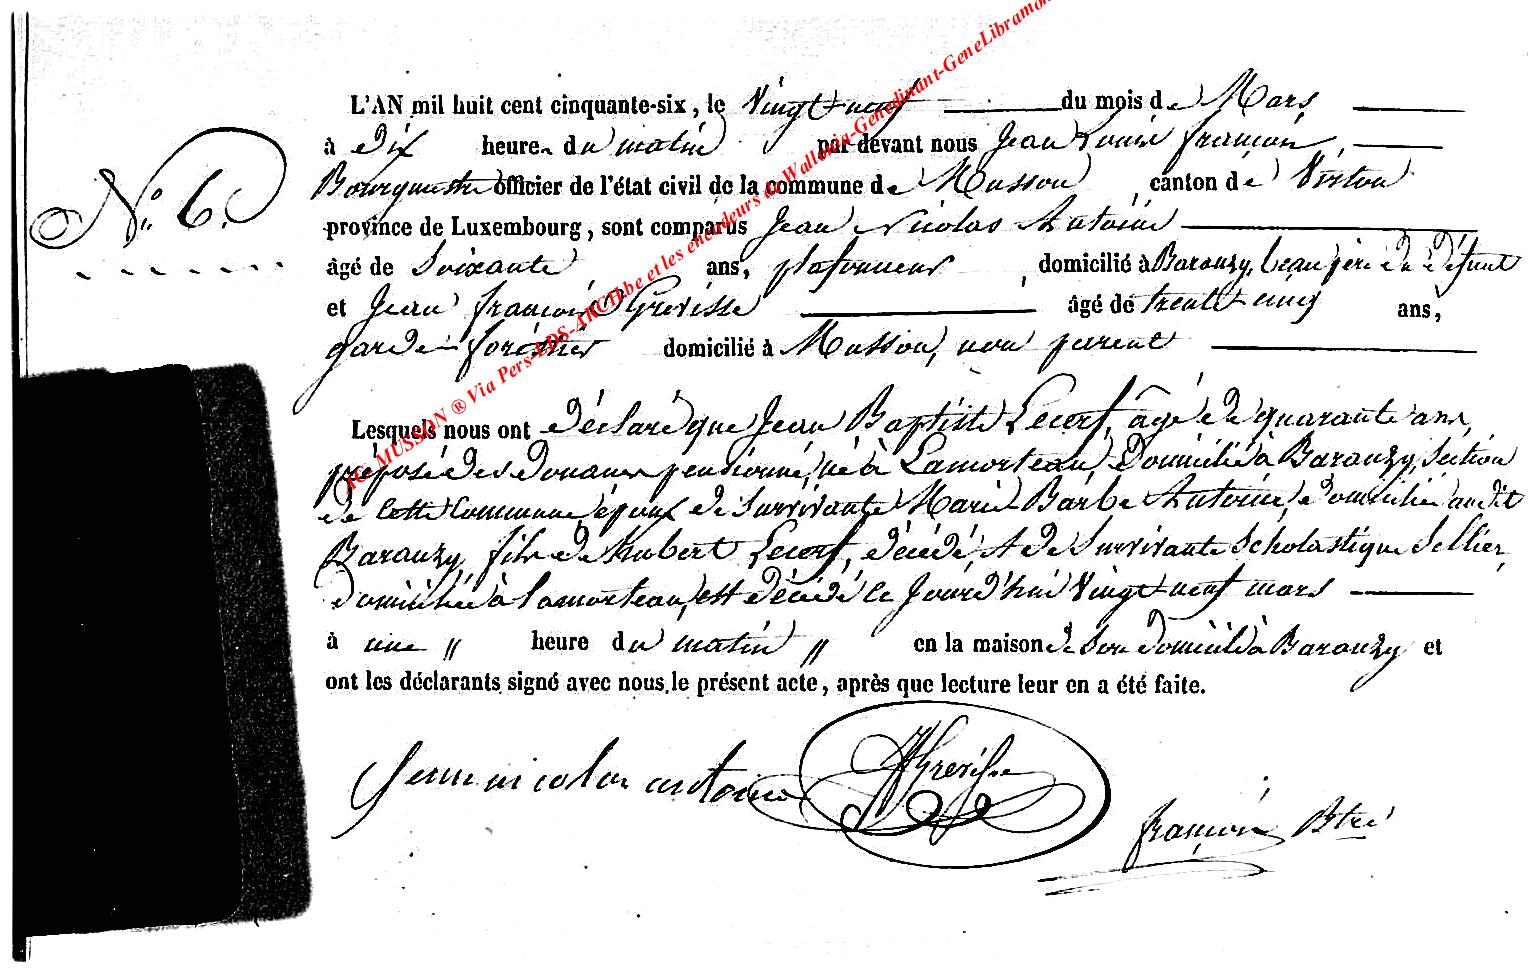 L'AN mil huit cent cinquante-six, le Vingt-neuf du mois de Mars
à Dix heures du matin par devant nous Jean Louis françois,
Bourgmestre officier de l'état civil de la commune de Musson, canton de Virton
N.° 6.
province de Luxembourg, sont comparus Jean Nicolas Antoine
âgé de Soixante ans, plafonneur, domicilié à Baranzy, beau père du défunt
et Jean françois Grévisse âgé de trente-cinq ans,
garde-forestier domicilié à Musson, non parent
Lesquels nous ont déclaré que Jean Baptiste Lecerf, âgé de quarante ans,
préposé des douanes pensionné, né à Lamorteau, Domicilié à Baranzy, Section
de cette Commune, époux de Survivante Marie Barbe Antoine, domiciliée audit
Baranzy, fils de hubert Lecerf, décédé, et de Survivante Scholastique Sellier,
Domiciliée à lamorteau, est décédé ce Jourd'hui Vingt-neuf mars
à une " heure du matin " en la maison de son domicile à Baranzy et
ont les déclarants signé avec nous le présent acte, après que lecture leur en a été faite.
Jean nicolas antoine
JfGrévisse
françois Btre
MUSSON ® Via Pers-LDS-ARCH.be et les encodeurs de Wallonia-Genedinant-GeneLibramon